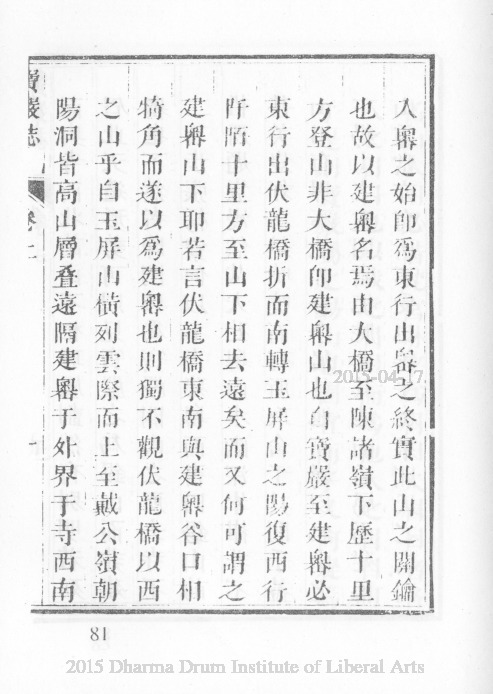 入嶴之始卽爲東行出嶴之終實此山之關鑰
也故以建嶴名焉由大橋至陳諸嶺下歷十里
方登山非大橋卽建嶴山也自寶嚴至建嶴必
東行出伏龍橋折而南轉玉屏山之陽復西行
阡陌十里方至山下相去遠矣而又何可謂之
建嶴山下耶若言伏龍橋東南與建嶴谷口相
犄角而遂以爲建嶴也則獨不觀伏龍橋以西
之山乎自玉屏山橫列雲際而上至戴公嶺朝
陽洞皆高山層叠遠隔建嶴于外界于寺西南
寶嚴志
卷上
一
81
2015-04-17
2015 Dharma Drum Institute of Liberal Arts